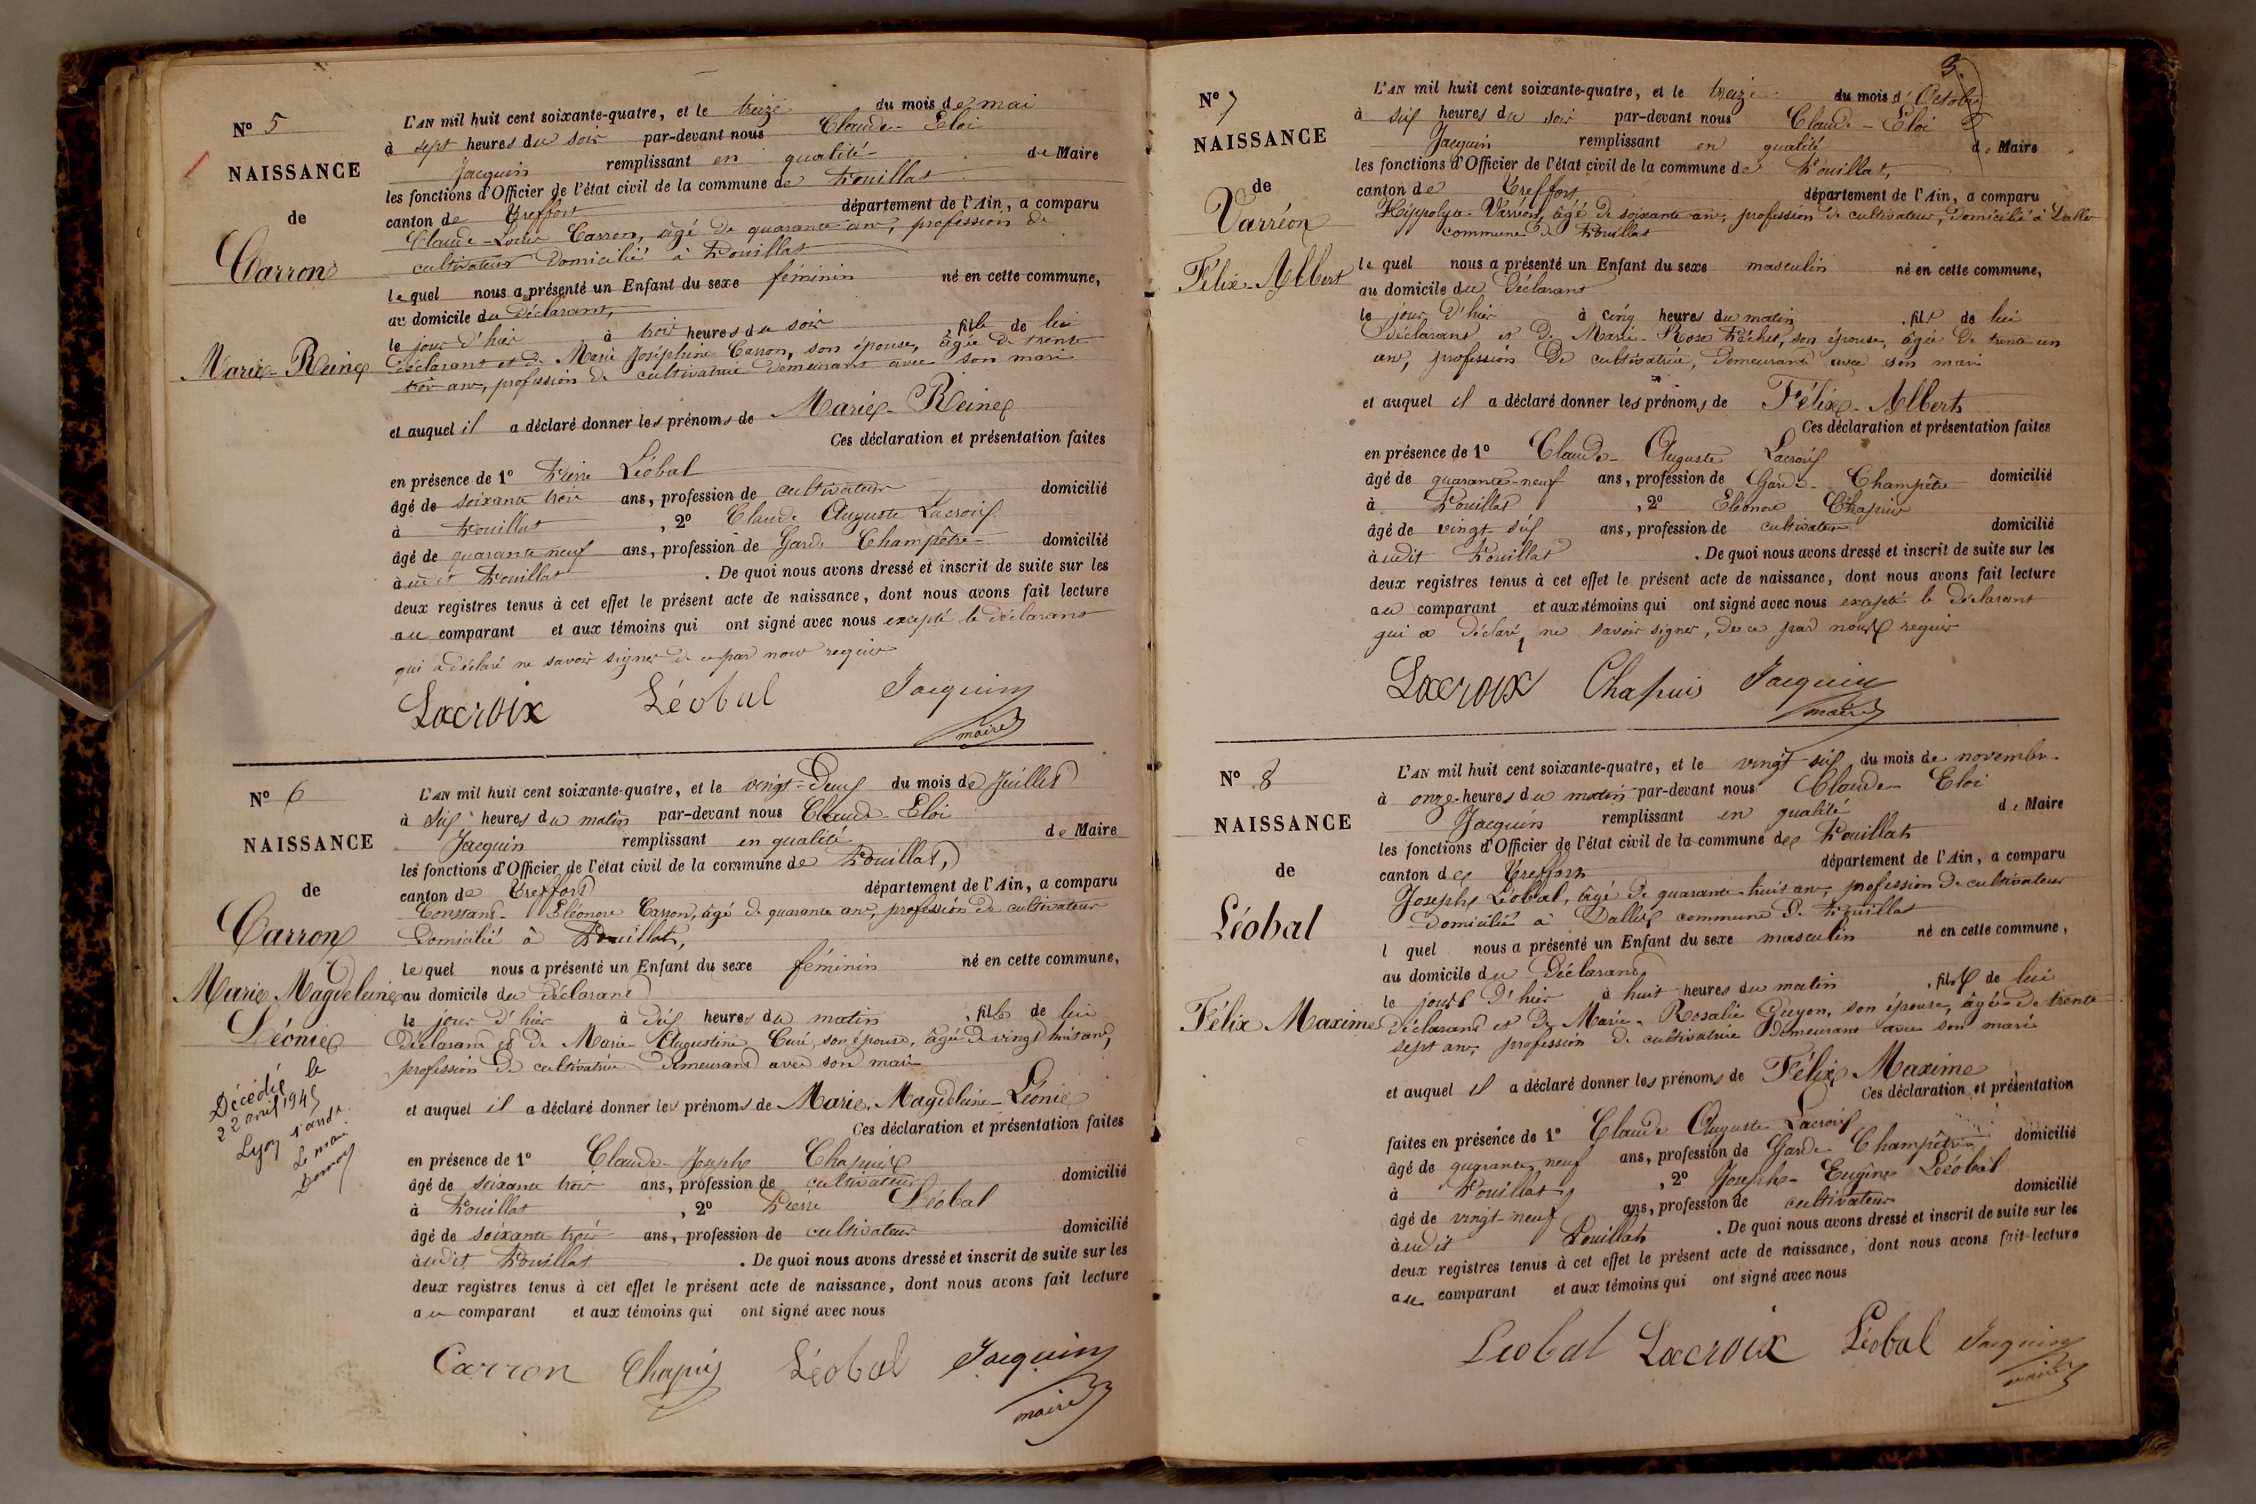 N° 5
NAISSANCE
de
Carron
Marie-Reine
L'AN mil huit cent soixante-quatre, et le treize du mois de mai
à sept heures du soir par-devant nous Claude-Eloi
Jacquin remplissant en qualité de Maire
les fonctions d'Officier de l'état civil de la commune de Pouillat
canton de Treffort département de l'Ain, a comparu
Claude-Louis Carron, âgé de quarante ans, profession de
cultivateur domicilié à Pouillat
lequel nous a présenté un Enfant du sexe féminin né en cette commune,
au domicile du déclarant,
le jour d'hier à trois heures du soir, fille de lui
déclarant et de Marie Joséphine Carron, son épouse, âgée de trente
trois ans, profession de cultivatrice demeurant avec son mari
et auquel il a déclaré donner les prénoms de Marie-Reine
Ces déclaration et présentation faites
en présence de 1° Pierre Léobal
âgé de soixante trois ans, profession de cultivateur domicilié
à Pouillat, 2° Claude Auguste Lacroix
âgé de quarante neuf ans, profession de Garde Champêtre domicilié
audit Pouillat. De quoi nous avons dressé et inscrit de suite sur les
deux registres tenus à cet effet le présent acte de naissance, dont nous avons fait lecture
au comparant et aux témoins qui ont signé avec nous excepté le déclarant
qui a déclaré ne savoir signer de ce par nous requis
Lacroix Léobal Jacquin
maire
N° 6
NAISSANCE
de
Carron
Marie Magdeleine
Léonie
Décédée le
22 avril 1945
Lyon 1er arrdt.
Le maire
L'AN mil huit cent soixante-quatre, et le vingt-deux du mois de Juillet
à six heures du matin par-devant nous Claude-Eloi
Jacquin remplissant en qualité de Maire
les fonctions d'Officier de l'état civil de la commune de Pouillat,
canton de Treffort département de l'Ain, a comparu
Constant-Eléonore Carron, âgé de quarante ans, profession de cultivateur
domicilié à Pouillat,
lequel nous a présenté un Enfant du sexe féminin né en cette commune,
au domicile du déclarant
le jour d'hier à dix heures du matin, fille de lui
déclarant et de Marie-Augustine Curé, son épouse, âgée de vingt huit ans,
profession de cultivatrice demeurant avec son mari
et auquel il a déclaré donner les prénoms de Marie-Magdeleine-Léonie
Ces déclaration et présentation faites
en présence de 1° Claude-Joseph Chapuis
âgé de soixante trois ans, profession de cultivateur domicilié
à Pouillat, 2° Pierre Léobal
âgé de soixante trois ans, profession de cultivateur domicilié
audit Pouillat. De quoi nous avons dressé et inscrit de suite sur les
deux registres tenus à cet effet le présent acte de naissance, dont nous avons fait lecture
au comparant et aux témoins qui ont signé avec nous
Carron Chapuis Léobal Jacquin
maire
3
N° 7
NAISSANCE
de
Varréon
Félix-Albert
L'AN mil huit cent soixante-quatre, et le treize du mois d'Octobre
à six heures du soir par-devant nous Claude-Eloi
Jacquin remplissant en qualité de Maire
les fonctions d'Officier de l'état civil de la commune de Pouillat,
canton de Treffort département de l'Ain, a comparu
Hippolyte Varréon, âgé de soixante ans, profession de cultivateur, domicilié à Dalles
commune de Pouillat
lequel nous a présenté un Enfant du sexe masculin né en cette commune,
au domicile du déclarant
le jour d'hier à cinq heures du matin, fils de lui
déclarant et de Marie-Rose Péchet, son épouse, âgée de trente un
ans, profession de cultivatrice, demeurant avec son mari
et auquel il a déclaré donner les prénoms de Félix-Albert
Ces déclaration et présentation faites
en présence de 1° Claude-Auguste Lacroix
âgé de quarante-neuf ans, profession de Garde-Champêtre domicilié
à Pouillat, 2° Eléonore Chapuis
âgé de vingt six ans, profession de cultivateur domicilié
audit Pouillat. De quoi nous avons dressé et inscrit de suite sur les
deux registres tenus à cet effet le présent acte de naissance, dont nous avons fait lecture
au comparant et aux témoins qui ont signé avec nous excepté le déclarant
qui a déclaré ne savoir signer, de ce par nous requis
Lacroix Chapuis Jacquin
maire
N° 8
NAISSANCE
de
Léobal
Félix Maxime
L'AN mil huit cent soixante-quatre, et le vingt-six du mois de novembre
à onze heures du matin par-devant nous Claude-Eloi
Jacquin remplissant en qualité de Maire
les fonctions d'Officier de l'état civil de la commune de Pouillat
canton de Treffort département de l'Ain, a comparu
Joseph Léobal, âgé de quarante-huit ans, profession de cultivateur
domicilié à Dalles commune de Pouillat
l quel nous a présenté un Enfant du sexe masculin né en cette commune,
au domicile du déclarant
le jour d'hier à huit heures du matin, fils de lui
déclarant et de Marie-Rosalie Guyon, son épouse, âgée de trente
sept ans, profession de cultivatrice demeurant avec son mari
et auquel il a déclaré donner les prénoms de Félix Maxime
Ces déclaration et présentation
faites en présence de 1° Claude Auguste Lacroix
âgé de quarante neuf ans, profession de Garde Champêtre domicilié
à Pouillat, 2° Joseph-Eugène Léobal
âgé de vingt-neuf ans, profession de cultivateur domicilié
audit Pouillat. De quoi nous avons dressé et inscrit de suite sur les
deux registres tenus à cet effet le présent acte de naissance, dont nous avons fait lecture
au comparant et aux témoins qui ont signé avec nous
Leobal Lacroix Léobal Jacquin
maire